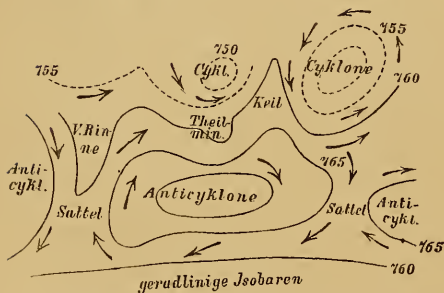 755
750
Cykl.
755
Cyklone
760
Keil
V.Rin-
ne
Theil-
min.
765
Anti-
cykl.
Anticyklone
Sattel
Sattel
Anti-
cykl.
765
760
geradlinige Isobaren